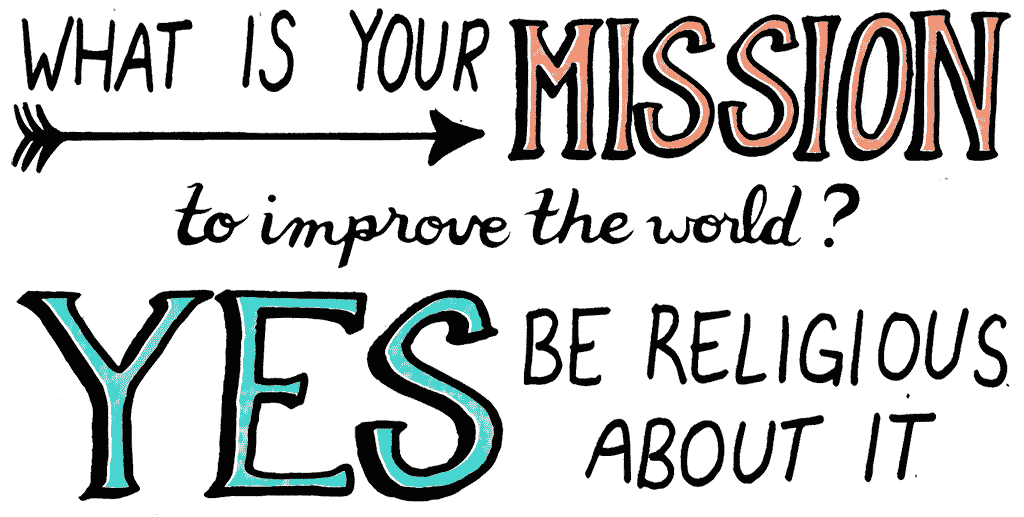 WHAT IS YOUR MISSION
to improve the world?
YES BE RELIGIOUS
ABOUT IT.